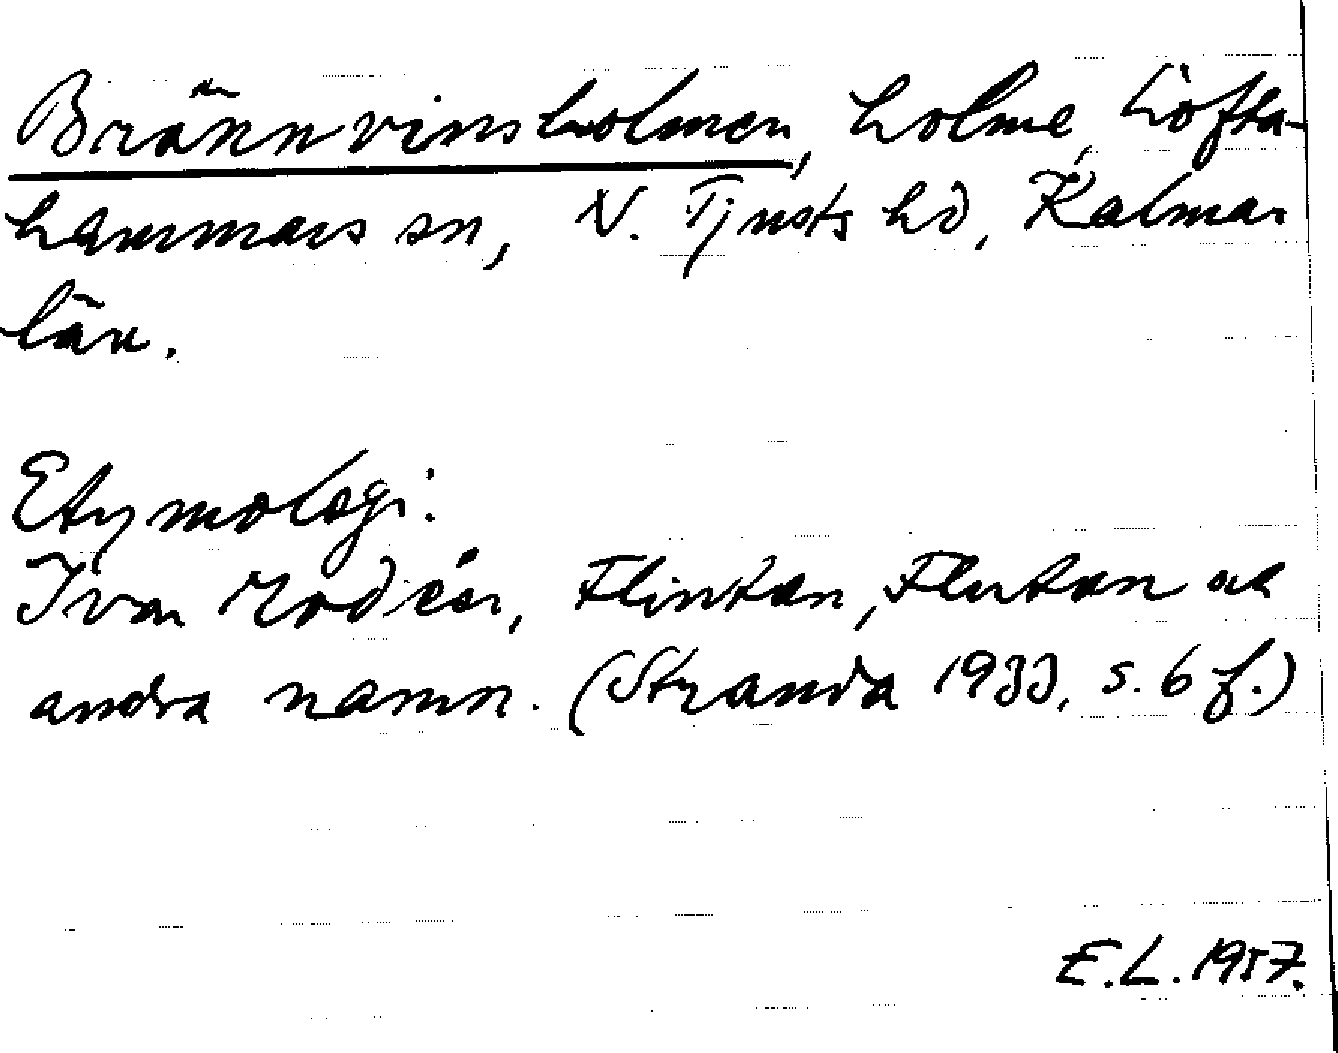 Brännvinsholmen, holme, Lofta-
hammars sn, N. Tjusts hd, Kalmar
län.
Etymologi:
Ivar Modéer, Flintan, Flutan och
andra namn. (Stranda 1933, s. 6 f.)
E.L. 1957.